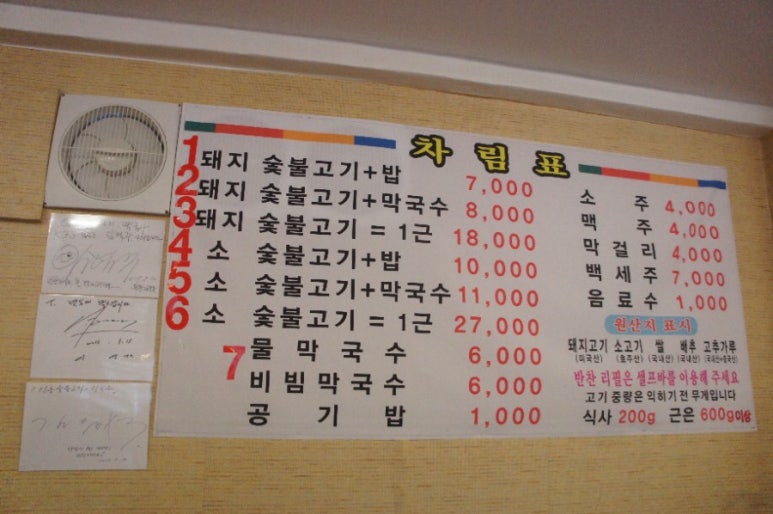 차림표
1 돼지 숯불고기+밥 7,000
2 돼지 숯불고기+막국수 8,000
3 돼지 숯불고기 = 1근 18,000
4 소 숯불고기+밥 10,000
5 소 숯불고기+막국수 11,000
6 소 숯불고기 = 1근 27,000
7 물막국수 6,000
비빔막국수 6,000
공기밥 1,000
소주 4,000
맥주 4,000
막걸리 4,000
백세주 7,000
음료수 1,000
원산지 표시
돼지고기 소고기 쌀 배추 고추가루
(미국산) (호주산) (국내산) (국내산) (국내산+중국산)
반찬 리필은 셀프바를 이용해 주세요
고기 중량은 익히기 전 무게입니다
식사 200g 근은 600g이상